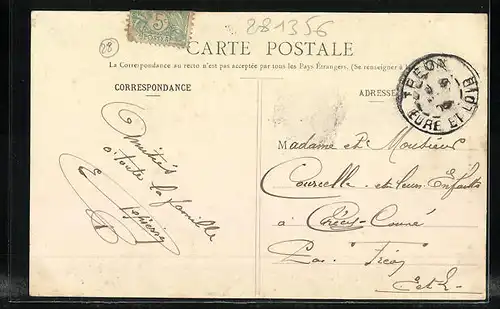 281356
28
5c
CARTE POSTALE
La Correspondance au recto n'est pas acceptée par tous les Pays Étrangers. (Se renseigner à
CORRESPONDANCE
ADRESSE
TREON
EURE ET LOIR
Amitiés
à toute la famille
Madame et Monsieur
Courcelle et leurs Enfants
à Crécy-Couvé
Par Tréon
E et L.